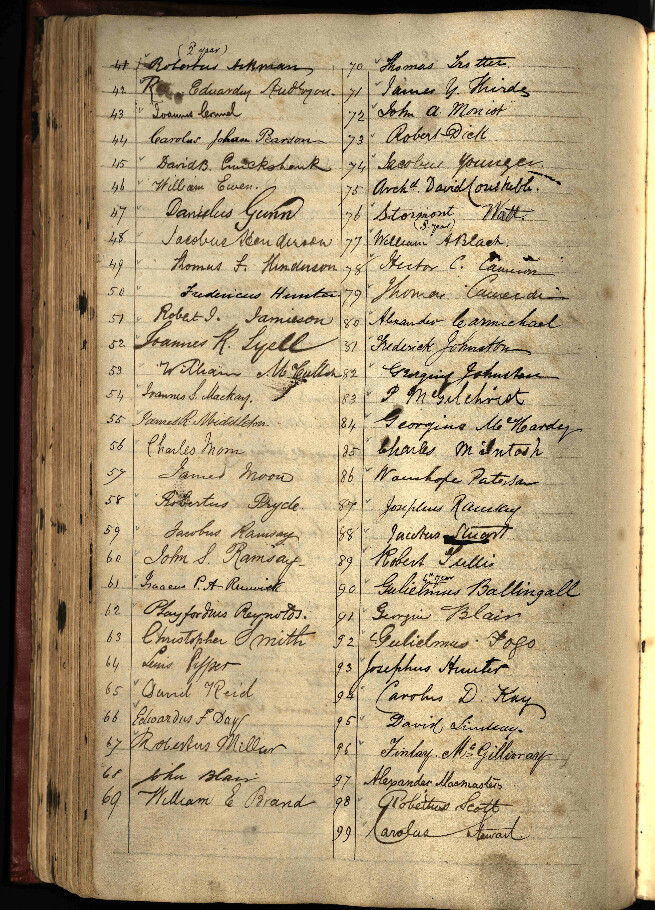 (2 year)
41 " Robertus Aikman
42 " Eduardus
43 " Ioannes
44 " Carolus Johan Pearson
45 " David B. Cruickshank
46 " William Ewen.
47 Danielus Gunn
48 " Jacobus Henderson
49 " Thomas F. Henderson
50 " Fredericus Hunter
51 " Robert J. Jamieson
52 Joannes R. Lyell
53 " William
54 " Ioannis S. Mackay.
55 " James R. Middleton
56 " Charles
57 " James Moon
58 " Robertus Pryde
59 " Jacobus Ramsay
60 " John S. Ramsay
61 " Isaacus P. A. Renwick
62 " Playfordus Reynolds.
63 Christopher Smith
64 " Pyper
65 " David Reid
66 Edwardus F Day
67 " Robertus Millar
68 " John Blair
69 " William E Brand
70 " Thomas Trotter
71 " James Y.
72 " John A.
73 " Robert Dick
74 " Jacobus Younger
75 " Archd. David Constable.
76 " Stormont Watt.
(3 year)
77 " William A Black.
78 Hector C. Cameron
79 Thomas
80 " Alexander Carmichael
81 " Frederick Johnston
82 " Georgius Johnston
83 " P McGilchrist
84 " Georgius McHardy
85 " Charles McIntosh
86 " Wauchope Paterson
87 " Josephus Ramsay
88 " Jacobus Stuart
89 " Robert Tullis
90 " Gulielmus Ballingall
91 " Georgius Blair
92 " Gulielmus Fogo
93 Josephus Hunter
94 " Carolus D. Kay
95 " David Lindsay.
96 " Finlay McGillivray
97 " Alexander Macmaster
98 " Robertus Scott
99 " Carolus Stewart